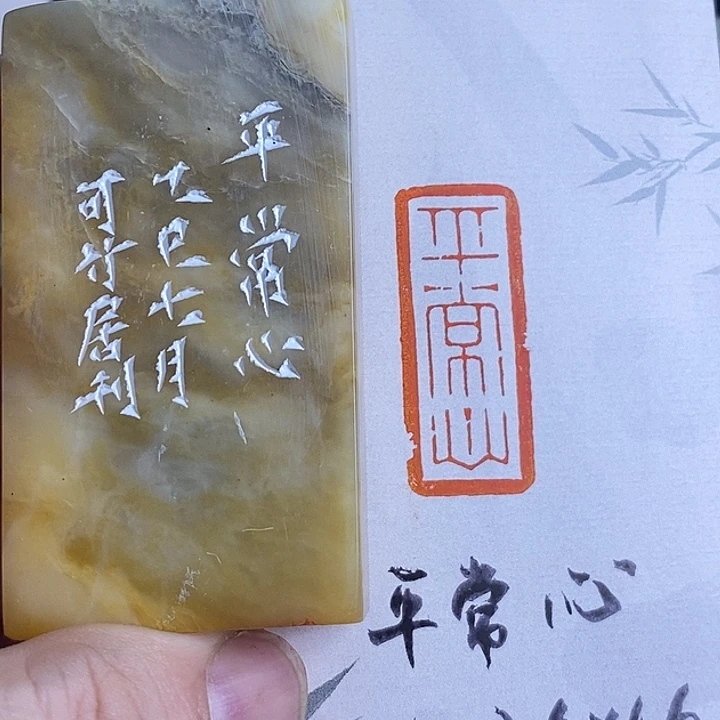 平常心
乙巳七月
可竹居刊
平常心
平常心